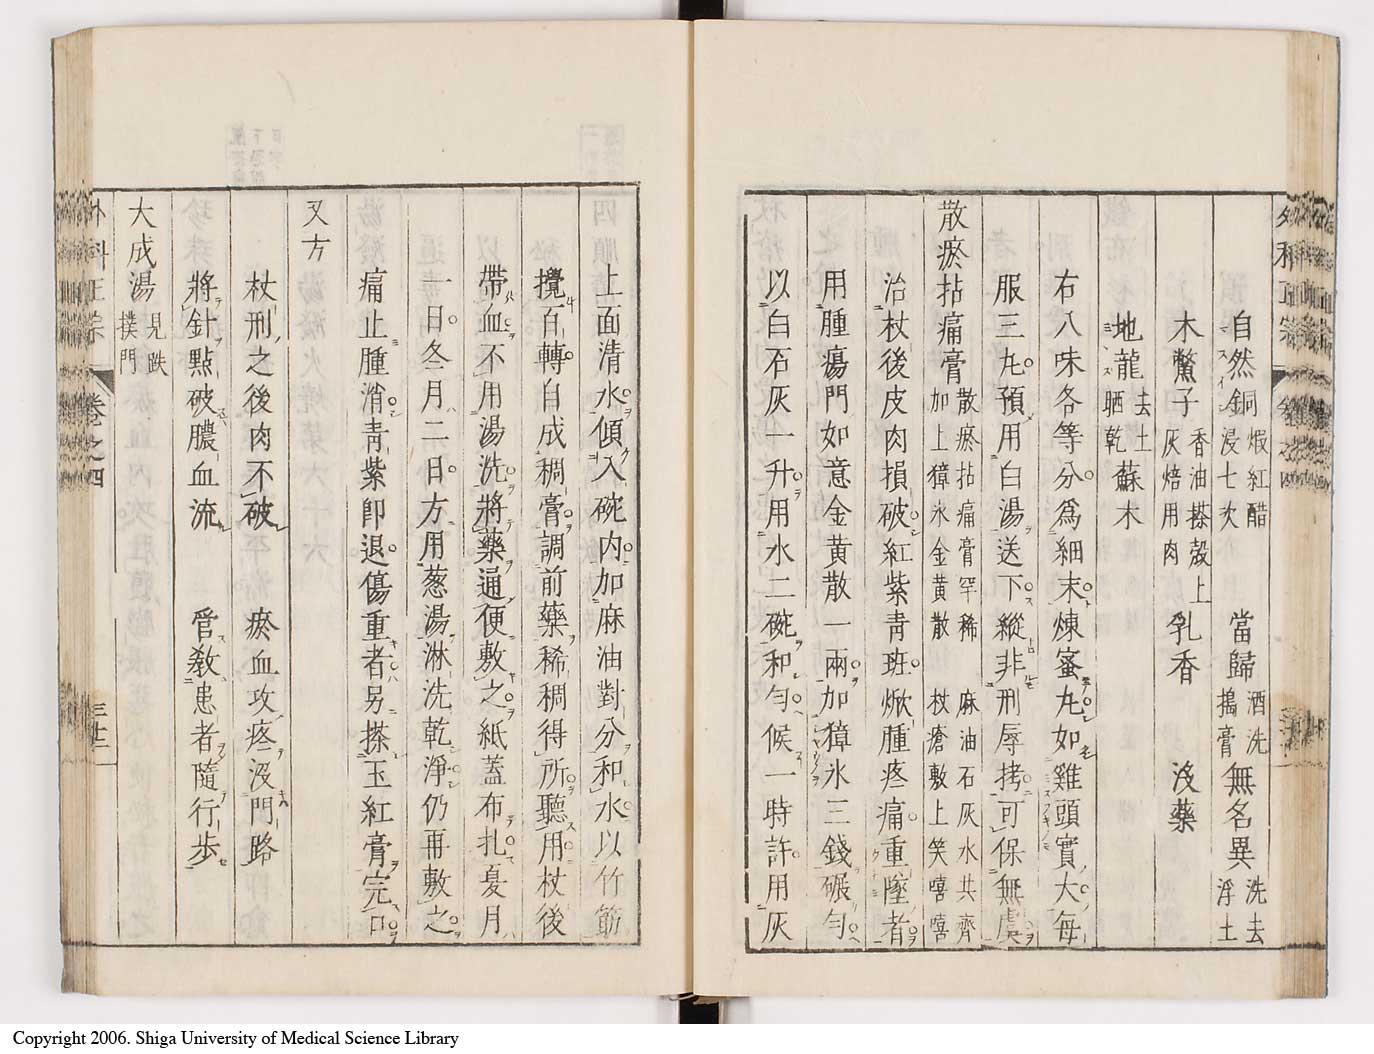 自然銅 煆紅醋浸七次 當歸 酒洗搗膏 無名異 洗去浮土
木鱉子 香油搽殼上灰焙用肉 乳香 沒藥
地龍 去土晒乾 蘇木
右八味各等分爲細末煉蜜丸如雞頭實大每
服三丸預用白湯送下縱非刑辱拷可保無虞
散瘀拈痛膏 散瘀拈痛膏罕稀 麻油石灰水共齊 加上獐氷金黄散 杖瘡敷上笑嘻嘻
治杖後皮肉損破紅紫青班焮腫疼痛重墜者
用腫瘍門如意金黄散一兩加獐氷三錢碾勻
以白石灰一升用水二碗和勻候一時許用灰
上面清水傾入碗内加麻油對分和水以竹筯
攪百轉自成稠膏調前藥稀稠得所聽用杖後
帶血不用湯洗將藥通便敷之紙蓋布扎夏月
一日冬月二日方用葱湯淋洗乾淨仍再敷之
痛止腫消青紫即退傷重者另搽玉紅膏完口
又方
杖刑之後肉不破 瘀血攻疼没門路
將針點破膿血流 管教患者隨行歩
大成湯 見跌撲門
外科正宗 卷之四 三十二
Copyright 2006. Shiga University of Medical Science Library